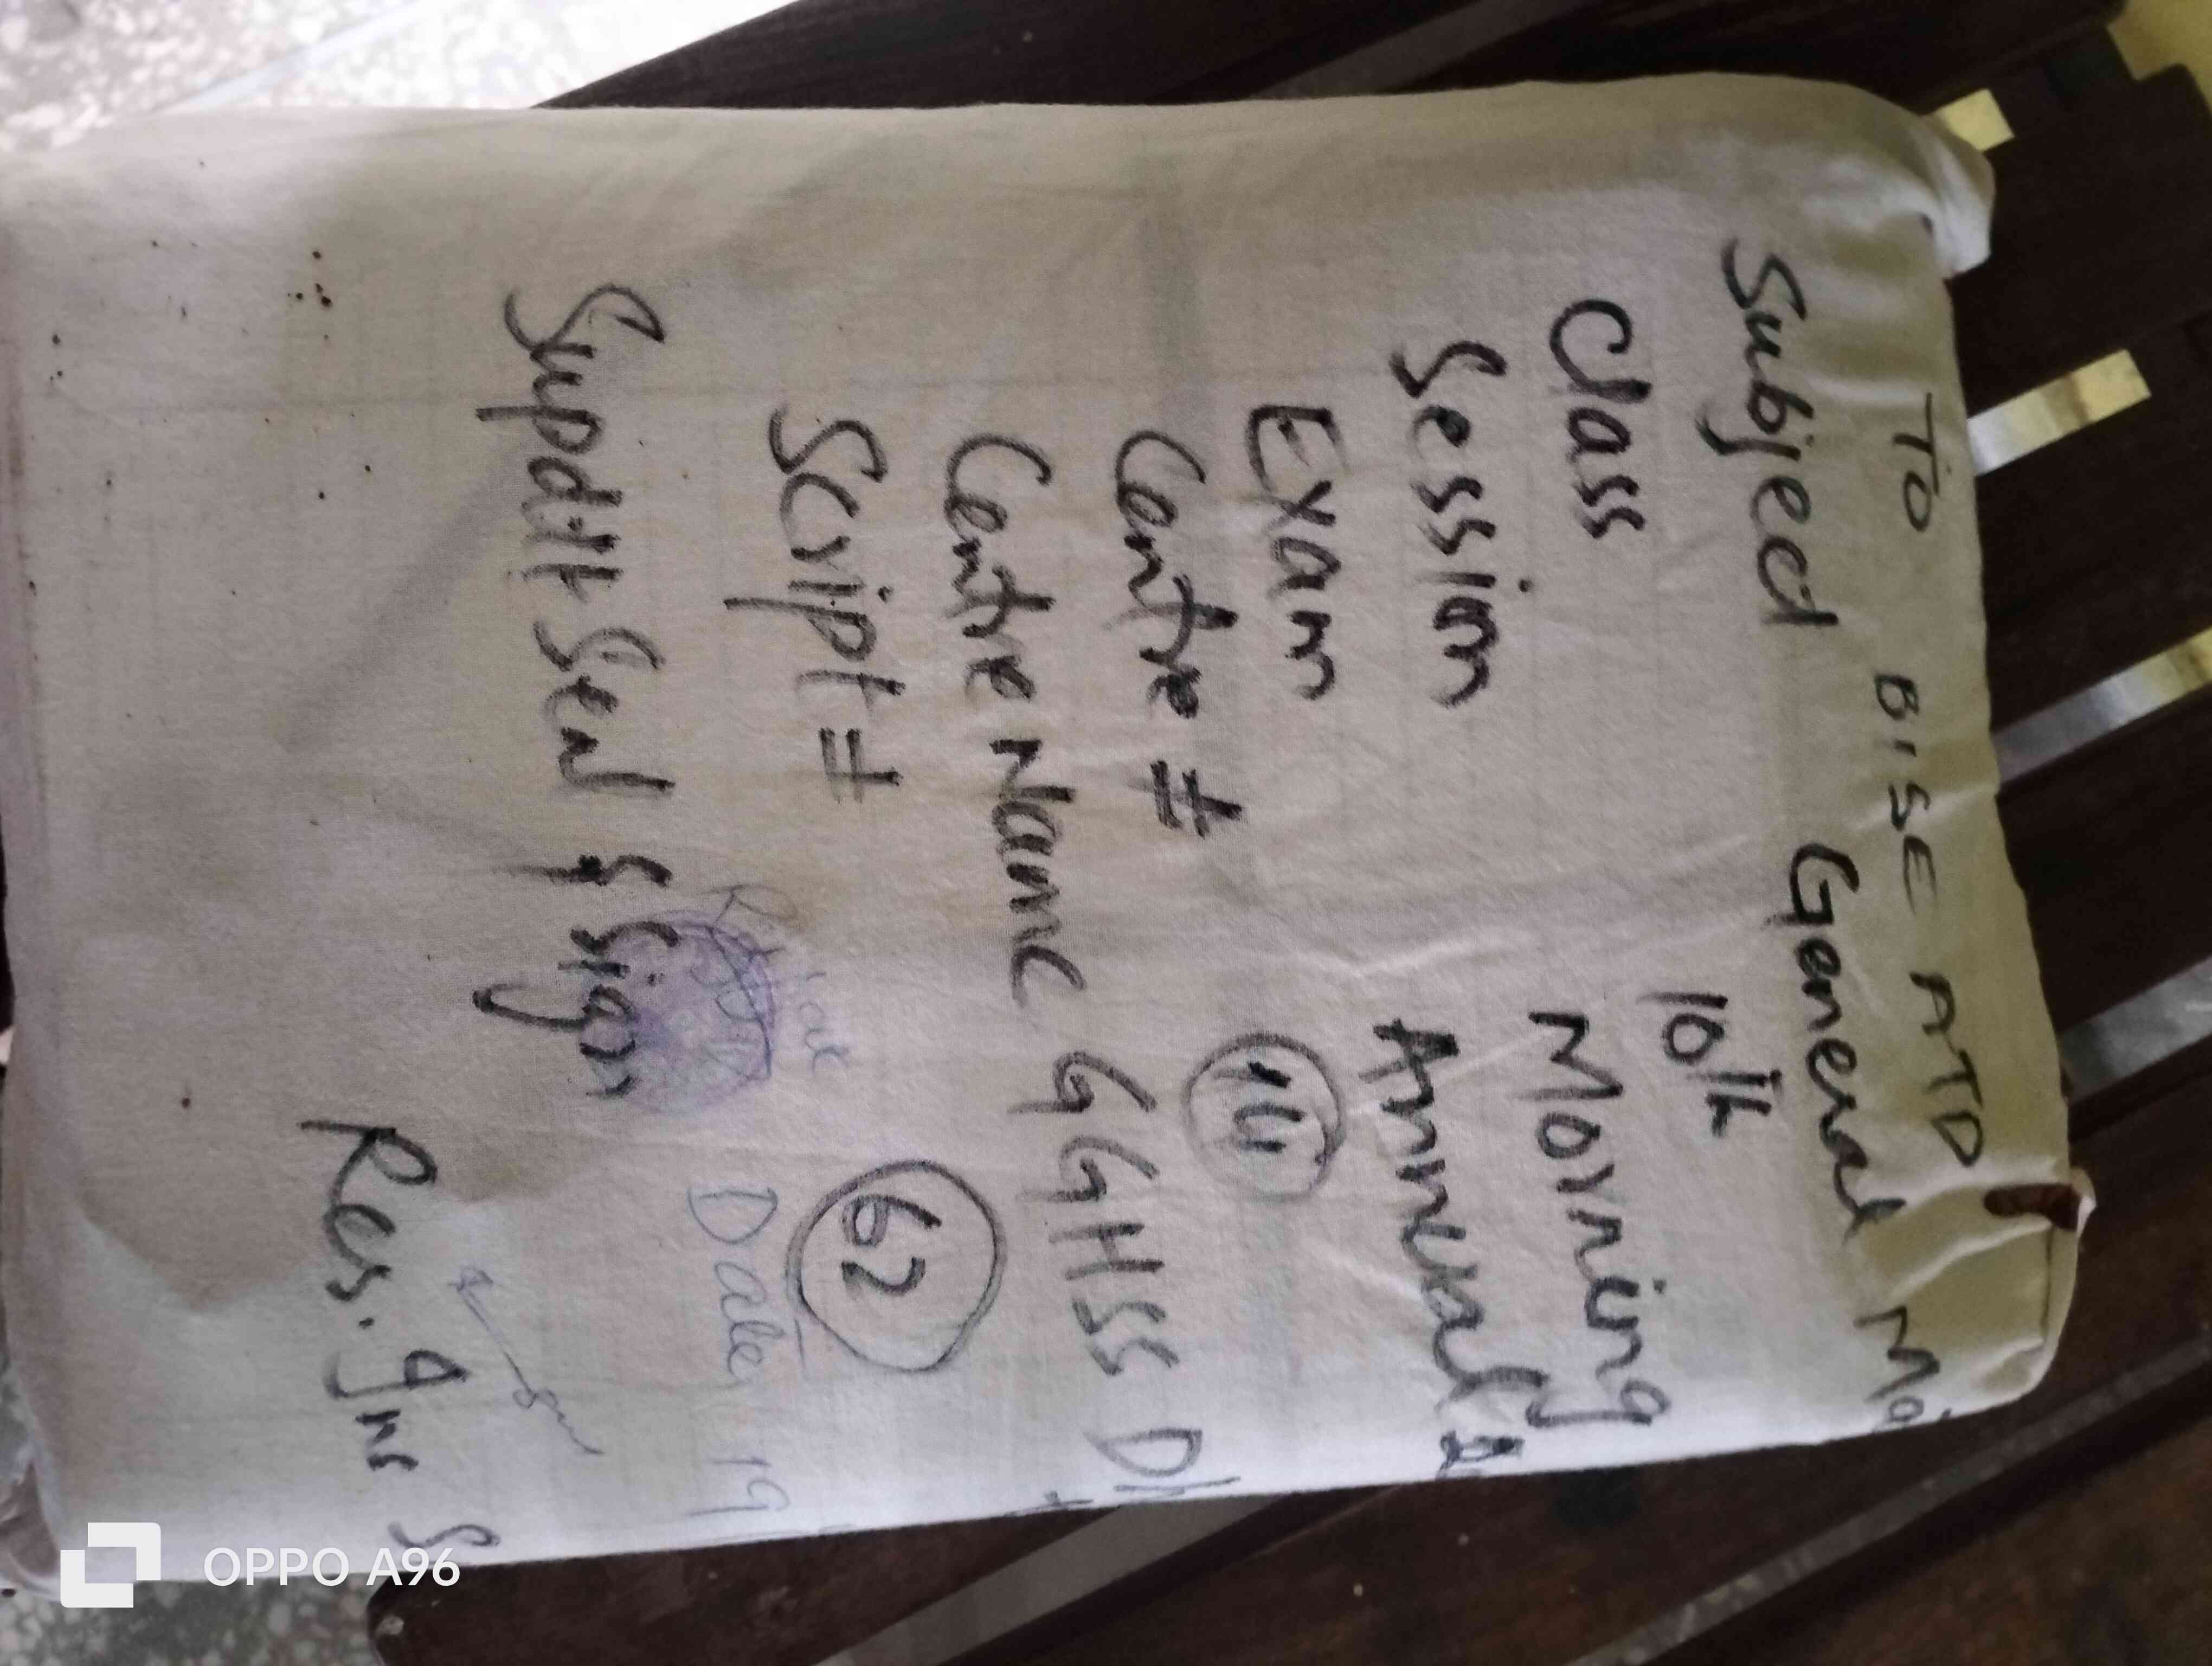 TO BISE ATD
Subject General Ma
Class 10th
Session Morning
Exam Annual 2
Centre #
Centre Name GGHSS Dh
Script # 62
Date 19
Supdtt Seal & Sign
Res. Ins S
OPPO A96